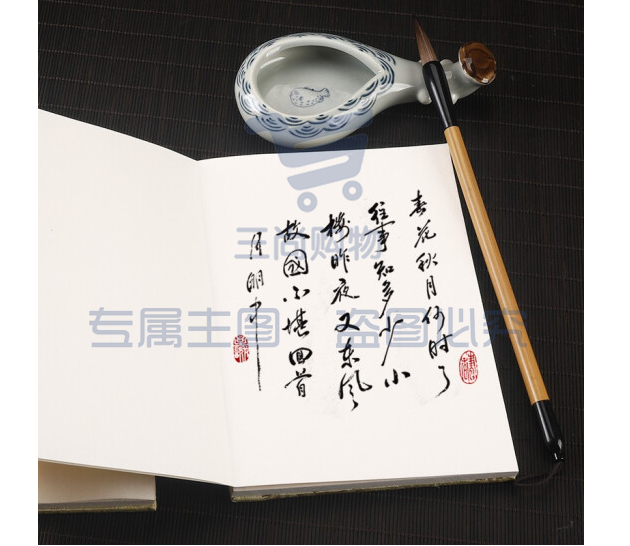 春花秋月何时了
往事知多少小
楼昨夜又东风
故國不堪回首
月明中
三尚购物
专属主图 盗图必究